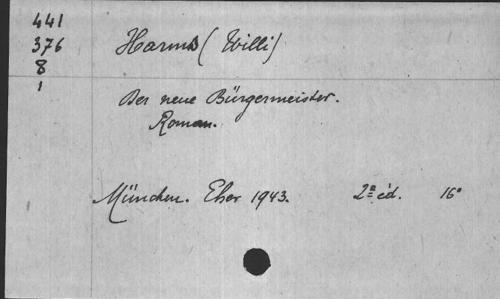 441
376
8
1
Harms (Willi)
Der neue Bürgermeister.
Roman.
München. Eher 1943. 2e éd. 16°